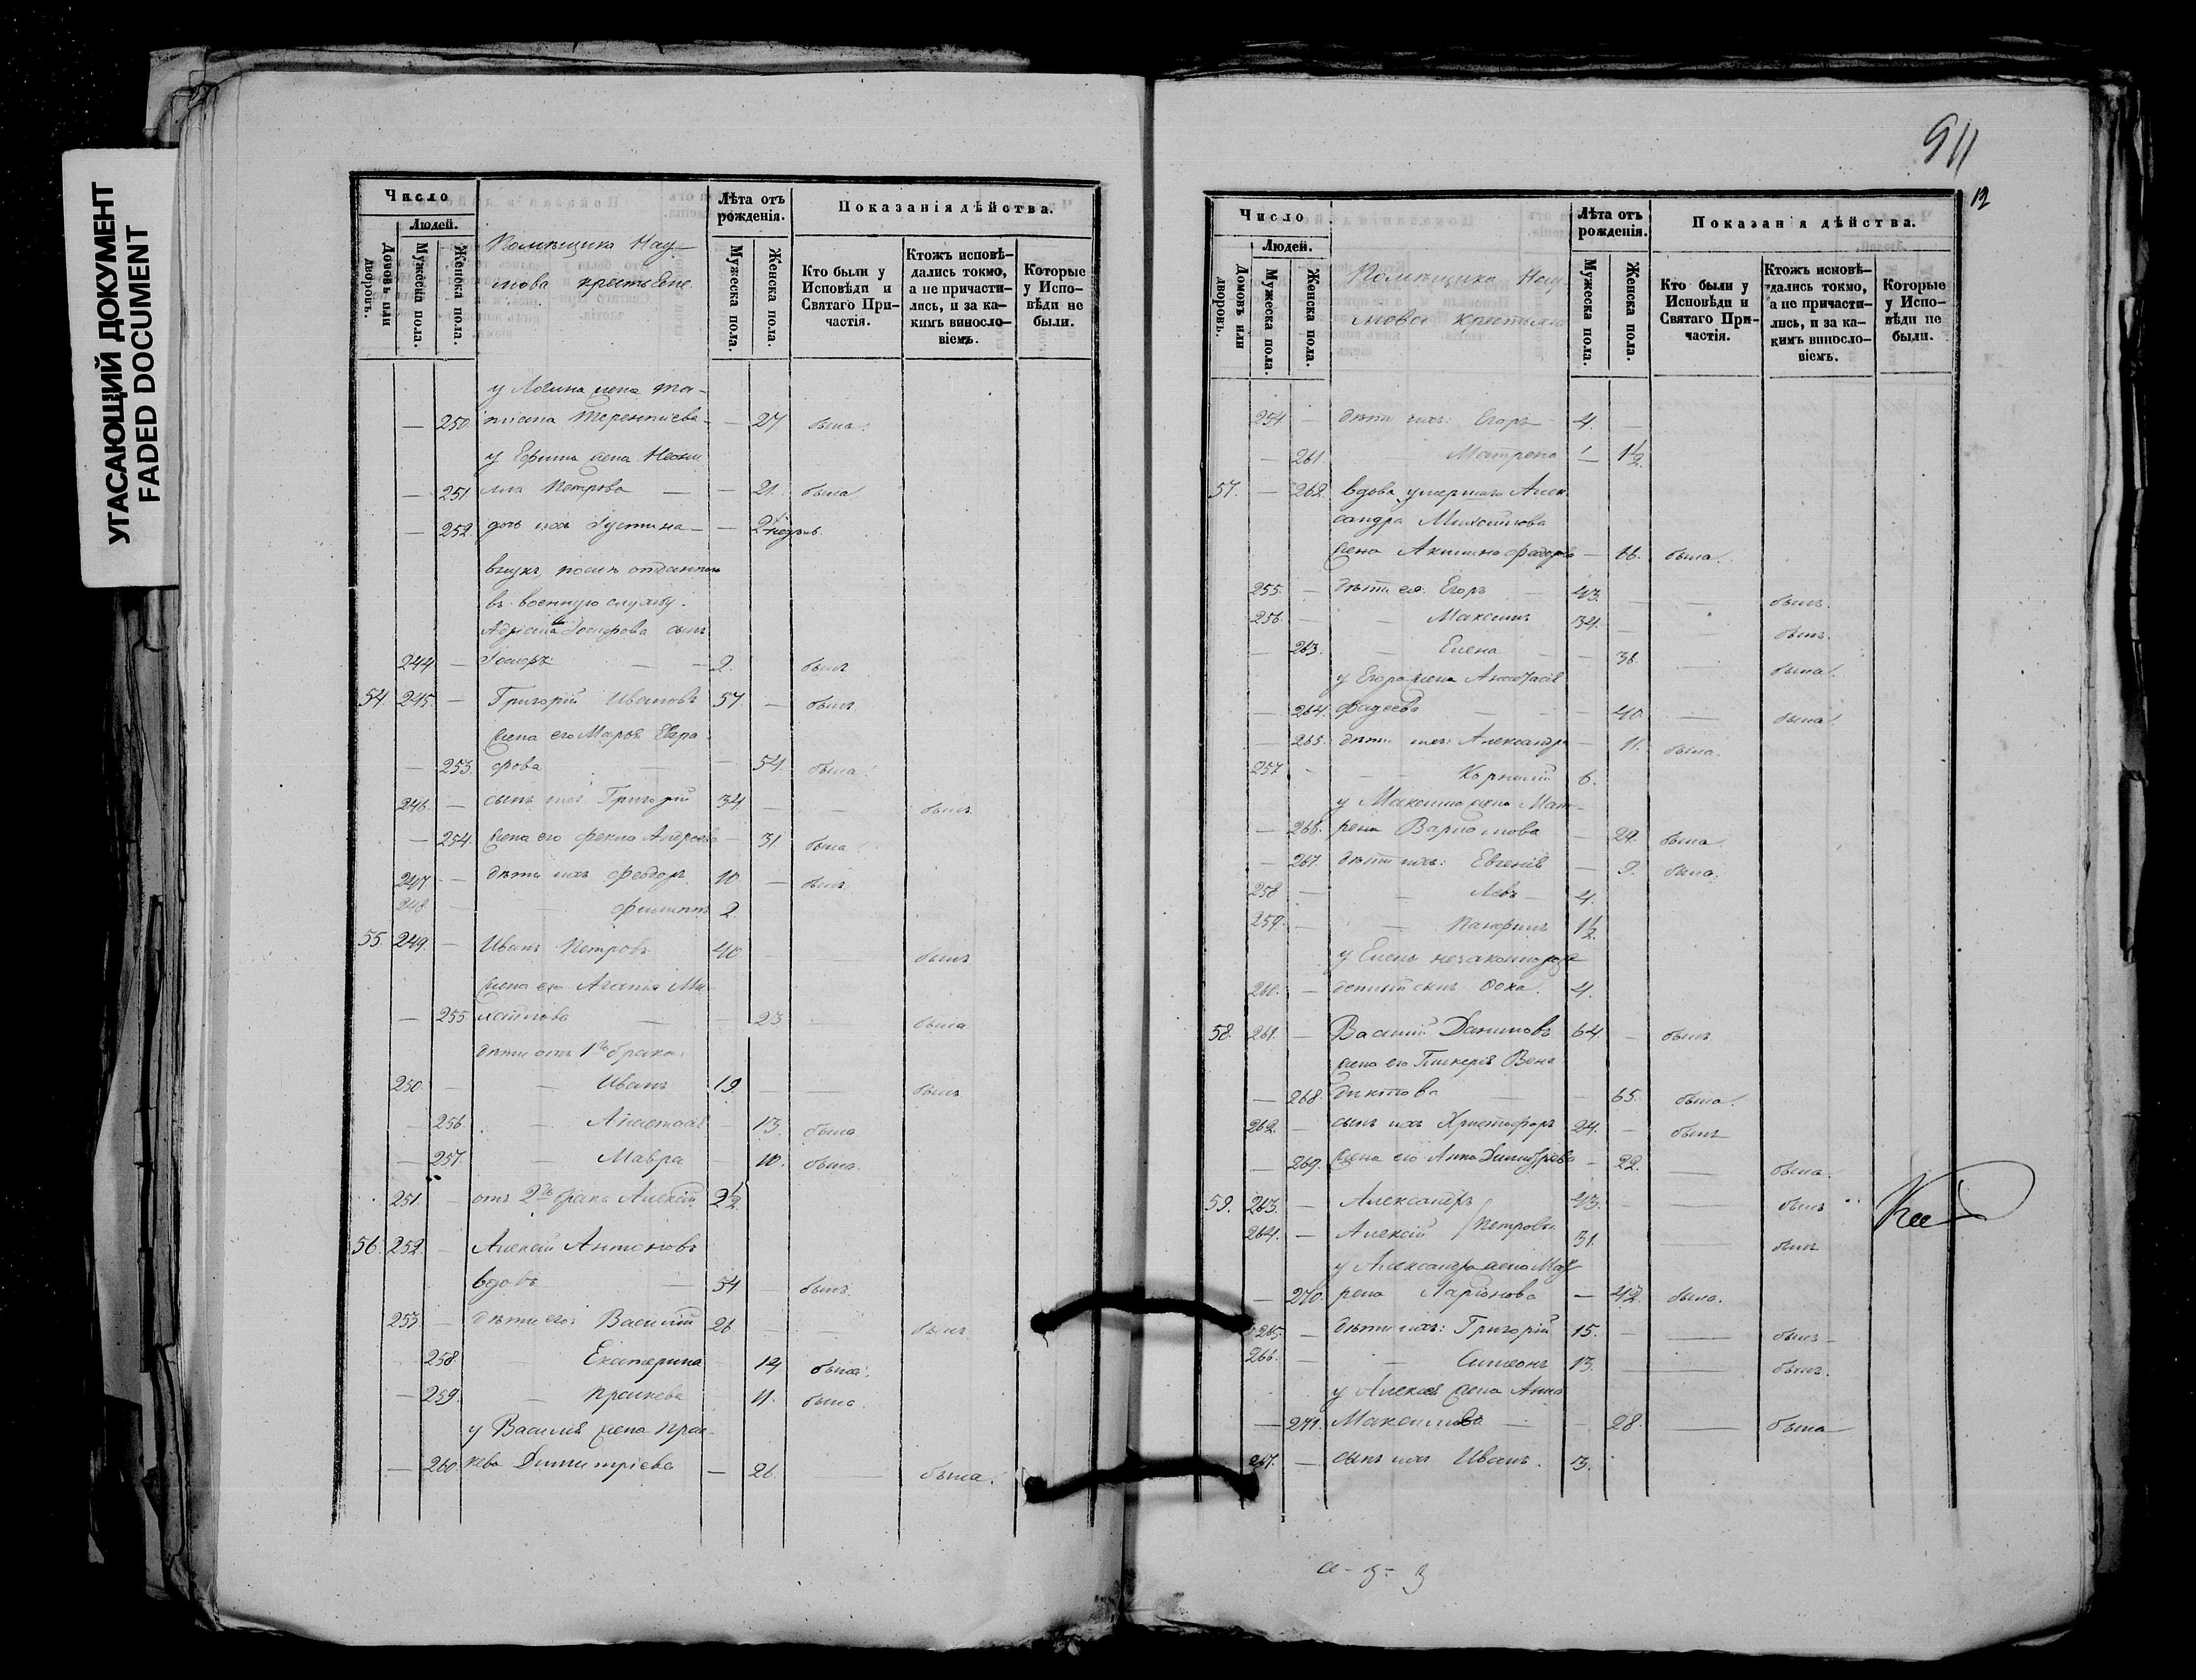 УГАСАЮЩИЙ ДОКУМЕНТ
FADED DOCUMENT
Число
Людей.
Домовъ или дворовъ.
Мужеска пола.
Женска пола.
Помѣщика Нау-
мова крестьяне
Лѣта отъ рожденія.
Мужеска пола.
Женска пола.
Показанія дѣйства.
Кто были у Исповѣди и Святаго При-частія.
Ктожъ исповѣ-дались токмо, а не причасти-лись, и за ка-кимъ винosло-віемъ.
Которые у Испо-вѣди не были.
у Логина жена Та-
— 250 тіана Терентіева — 27. была.
у Ефима жена Неони
— 251 лла Петрова — — 21. была
— 252. дочь ихъ Іустина —
внукъ, послѣ отданнаго
въ военную службу.
Адріана Іосифова сынъ
244 — — — 2. былъ
54. 245. — Григорій Ивановъ 57. — былъ
жена его Марья Евгра-
— 253. фова — — 54. была.
246. — сынъ ихъ Григорій 34. — — былъ
— 254. жена его Фекла Андреева — 31 была.
247 — дѣти ихъ Феодоръ 10. — былъ
248 — — Филиппъ 2.
55. 249. — Иванъ Петровъ 40 — — былъ
жена его Агапія Ми-
— 255. хайлова — — 23 — была
дѣти отъ 1го брака:
250. — — Иванъ 19. — — былъ
— 256. — Анастасія — 13. была
— 257. — Мавра — 10. была.
251. — отъ 2го брака Алексій 2½
56. 252. — Алексій Антоновъ
вдовъ — 54 — былъ.
253. — дѣти его: Василій 26 — — былъ
— 258. — Екатерина — 14 была.
— 259. — Праскева — 11. была.
у Василія жена Прас-
— 260. кева Димитріева — 26. — была.
911
12
Число
Людей.
Домовъ или дворовъ.
Мужеска пола.
Женска пола.
Помѣщика Нау-
мова крестьяне
Лѣта отъ рожденія.
Мужеска пола.
Женска пола.
Показан я дѣйства.
Кто были у Исповѣди и Святаго При-частія.
Ктожъ исповѣ-дались токмо, а не причасти-лись, и за ка-кимъ винosло-віемъ.
Которые у Испо-вѣди не были.
254 — дѣти ихъ: Егоръ 4. —
— 261 Матрена — 1½.
57. — 262. вдова умершаго Алек-
сандра Михайлова
жена Акилина Федорова — 66. была.
255. — дѣти ея: Егоръ — 43. — — былъ.
256. — — Максимъ 34. — — былъ.
— 263. — Елена — — 36. — была.
у Егора жена Анастасія
— 264. Фадеева — — 40. — была.
— 265. дѣти ихъ: Александра — 11. была.
257 — — Корнилій 6.
у Максима жена Мат-
— 266. рена — 29. была.
— 267. дѣти ихъ: Евгенія — 9. была.
258 — — Левъ — 4.
259. — — Панфилъ 1½
у Елены незаконнорож-
260. — денный сынъ Фока. 4.
58. 261. — Василій Даниловъ 64. — былъ
жена его Гликерія Вене-
— 268. диктова — — 65. была.
262. — сынъ ихъ Христофоръ 24. — былъ
— 269. жена его Анна Димитріева — 22. — была.
59. 263. — Александръ 43. — — былъ
264. — Алексій Петровы 31. — былъ
у Александра жена Мат-
— 270. рена Ларіонова — 42. была.
265. — дѣти ихъ: Григорій 15. — — былъ
266. — — Симеонъ 13. — былъ.
у Алексія жена Анна
— 271. Максимова — — 28. — была
267. — сынъ ихъ Иванъ. 3.